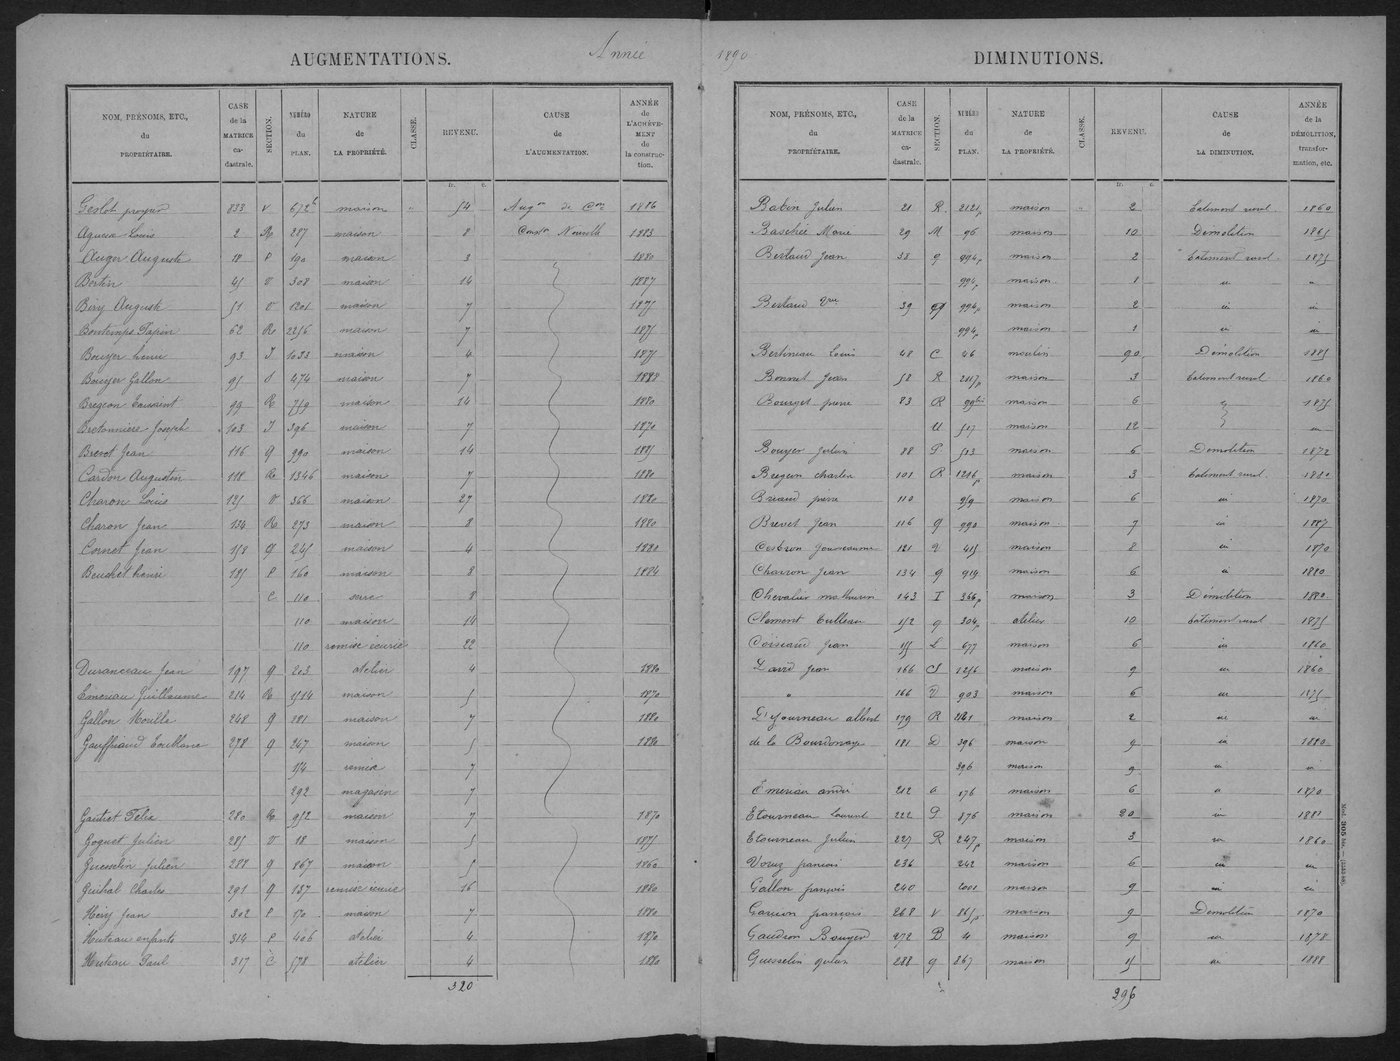 AUGMENTATIONS.
Année
NOM, PRÉNOMS, ETC., du PROPRIÉTAIRE. | CASE de la MATRICE ca- dastrale. | SECTION. | NUMÉRO du PLAN. | NATURE de LA PROPRIÉTÉ. | CLASSE. | REVENU. | CAUSE de L'AUGMENTATION. | ANNÉE de L'ACHÈVE- MENT de la construc- tion.
fr. c.
Geslot prosper 833 V 672 b maison " 54 Augon de Con 1886
Aguesse Louis 2 R 287 maison 8 Conston Nouvelle 1883
Auger Auguste 18 P 190 maison 3 1880
Bertin 45 V 308 maison 14 1887
Biry Auguste 51 V 1201 maison 7 1875
Bontemps Papin 62 R 2256 maison 7 1875
Bouyer henri 93 I 1033 maison 4 1875
Bouyer Gallon 95 S 474 maison 7 1888
Bregeon Toussaint 99 R 759 maison 14 1880
Bretonniere Joseph 103 I 396 maison 7 1870
Brevet Jean 116 G 990 maison 14 1885
Cardon Augustin 118 R 1346 maison 7 1880
Charon Louis 125 V 366 maison 27 1880
Charon Jean 134 R 273 maison 8 1880
Cornet Jean 158 G 245 maison 4 1880
Bouchet henri 185 P 160 maison 8 1884
C 110 serre 8
110 maison 14
110 remise écurie 22
Duranceau Jean 197 G 203 atelier 4 1880
Emeriau Guillaume 214 R 1514 maison 5 1870
Gallon Moulle 248 G 181 maison 7 1880
Gauffriaud Toublanc 278 G 247 maison 5 1880
154 remise 7
292 magasin 7
Gautret Félix 280 R 952 maison 7 1870
Goguet Julien 285 V 18 maison 5 1875
Guesselin Julien 288 G 867 maison 5 1860
Guihal Charles 291 G 137 remise écurie 16 1880
Héry Jean 302 P 170 maison 7 1880
Huteau enfants 314 P 406 atelier 4 1870
Huteau Paul 317 C 578 atelier 4 1880
320
1890
DIMINUTIONS.
NOM, PRÉNOMS, ETC., du PROPRIÉTAIRE. | CASE de la MATRICE ca- dastrale. | SECTION. | NUMÉRO du PLAN. | NATURE de LA PROPRIÉTÉ. | CLASSE. | REVENU. | CAUSE de LA DIMINUTION. | ANNÉE de la DÉMOLITION, transfor- mation, etc.
fr. c.
Babin Julien 21 R 2121p maison " 2 batiment rural 1860
Baschée Marie 29 M 96 maison 10 Démolition 1865
Bertaud Jean 38 G 994p maison 2 batiment rural 1875
994p maison 1 id "
Bertaud Vve 39 G 994p maison 2 id id
994p maison 1 id id
Bertineau Louis 48 C 46 moulin 90 Démolition 1885
Bonnet Jean 58 R 2157p maison 3 batiment rural 1860
Bourget pierre 83 R 99bis maison 6 1875
U 507 maison 12 id
Bouyer Julien 88 P 513 maison 6 Démolition 1872
Bregeon charles 101 R 1216p maison 3 batiment rural 1880
Briand pierre 110 959 maison 6 id 1870
Brevet Jean 116 G 990 maison 7 id 1887
Cesbron Jousseaume 121 V 415 maison 8 id 1870
Charron Jean 134 G 919 maison 6 id 1880
Chevalier mathurin 143 I 366p maison 3 Démolition 1880
Clement Tulleau 152 G 304p atelier 10 batiment rural 1875
Coiscaud Jean 155 L 677 maison 6 id 1860
David Jean 166 C 1256 maison 9 id 1860
" 166 V 903 maison 6 id 1875
D'Etourneau albert 179 R 221 maison 2 id id
de la Bourdonnaye 181 D 396 maison 9 id 1880
396 maison 9 id id
Emeriau andré 212 C 176 maison 6 id 1870
Etourneau Laurent 222 P 876 maison 20 id 1881
Etourneau Julien 227 R 247p maison 3 id 1860
Voruz françois 236 242 maison 6 id id
Gallon françois 240 2001 maison 9 id id
Garçion françois 268 V 865p maison 9 Démolition 1870
Gaudron Bouyer 272 B 4 maison 9 id 1878
Guesselin Julien 288 G 867 maison 15 id 1888
296